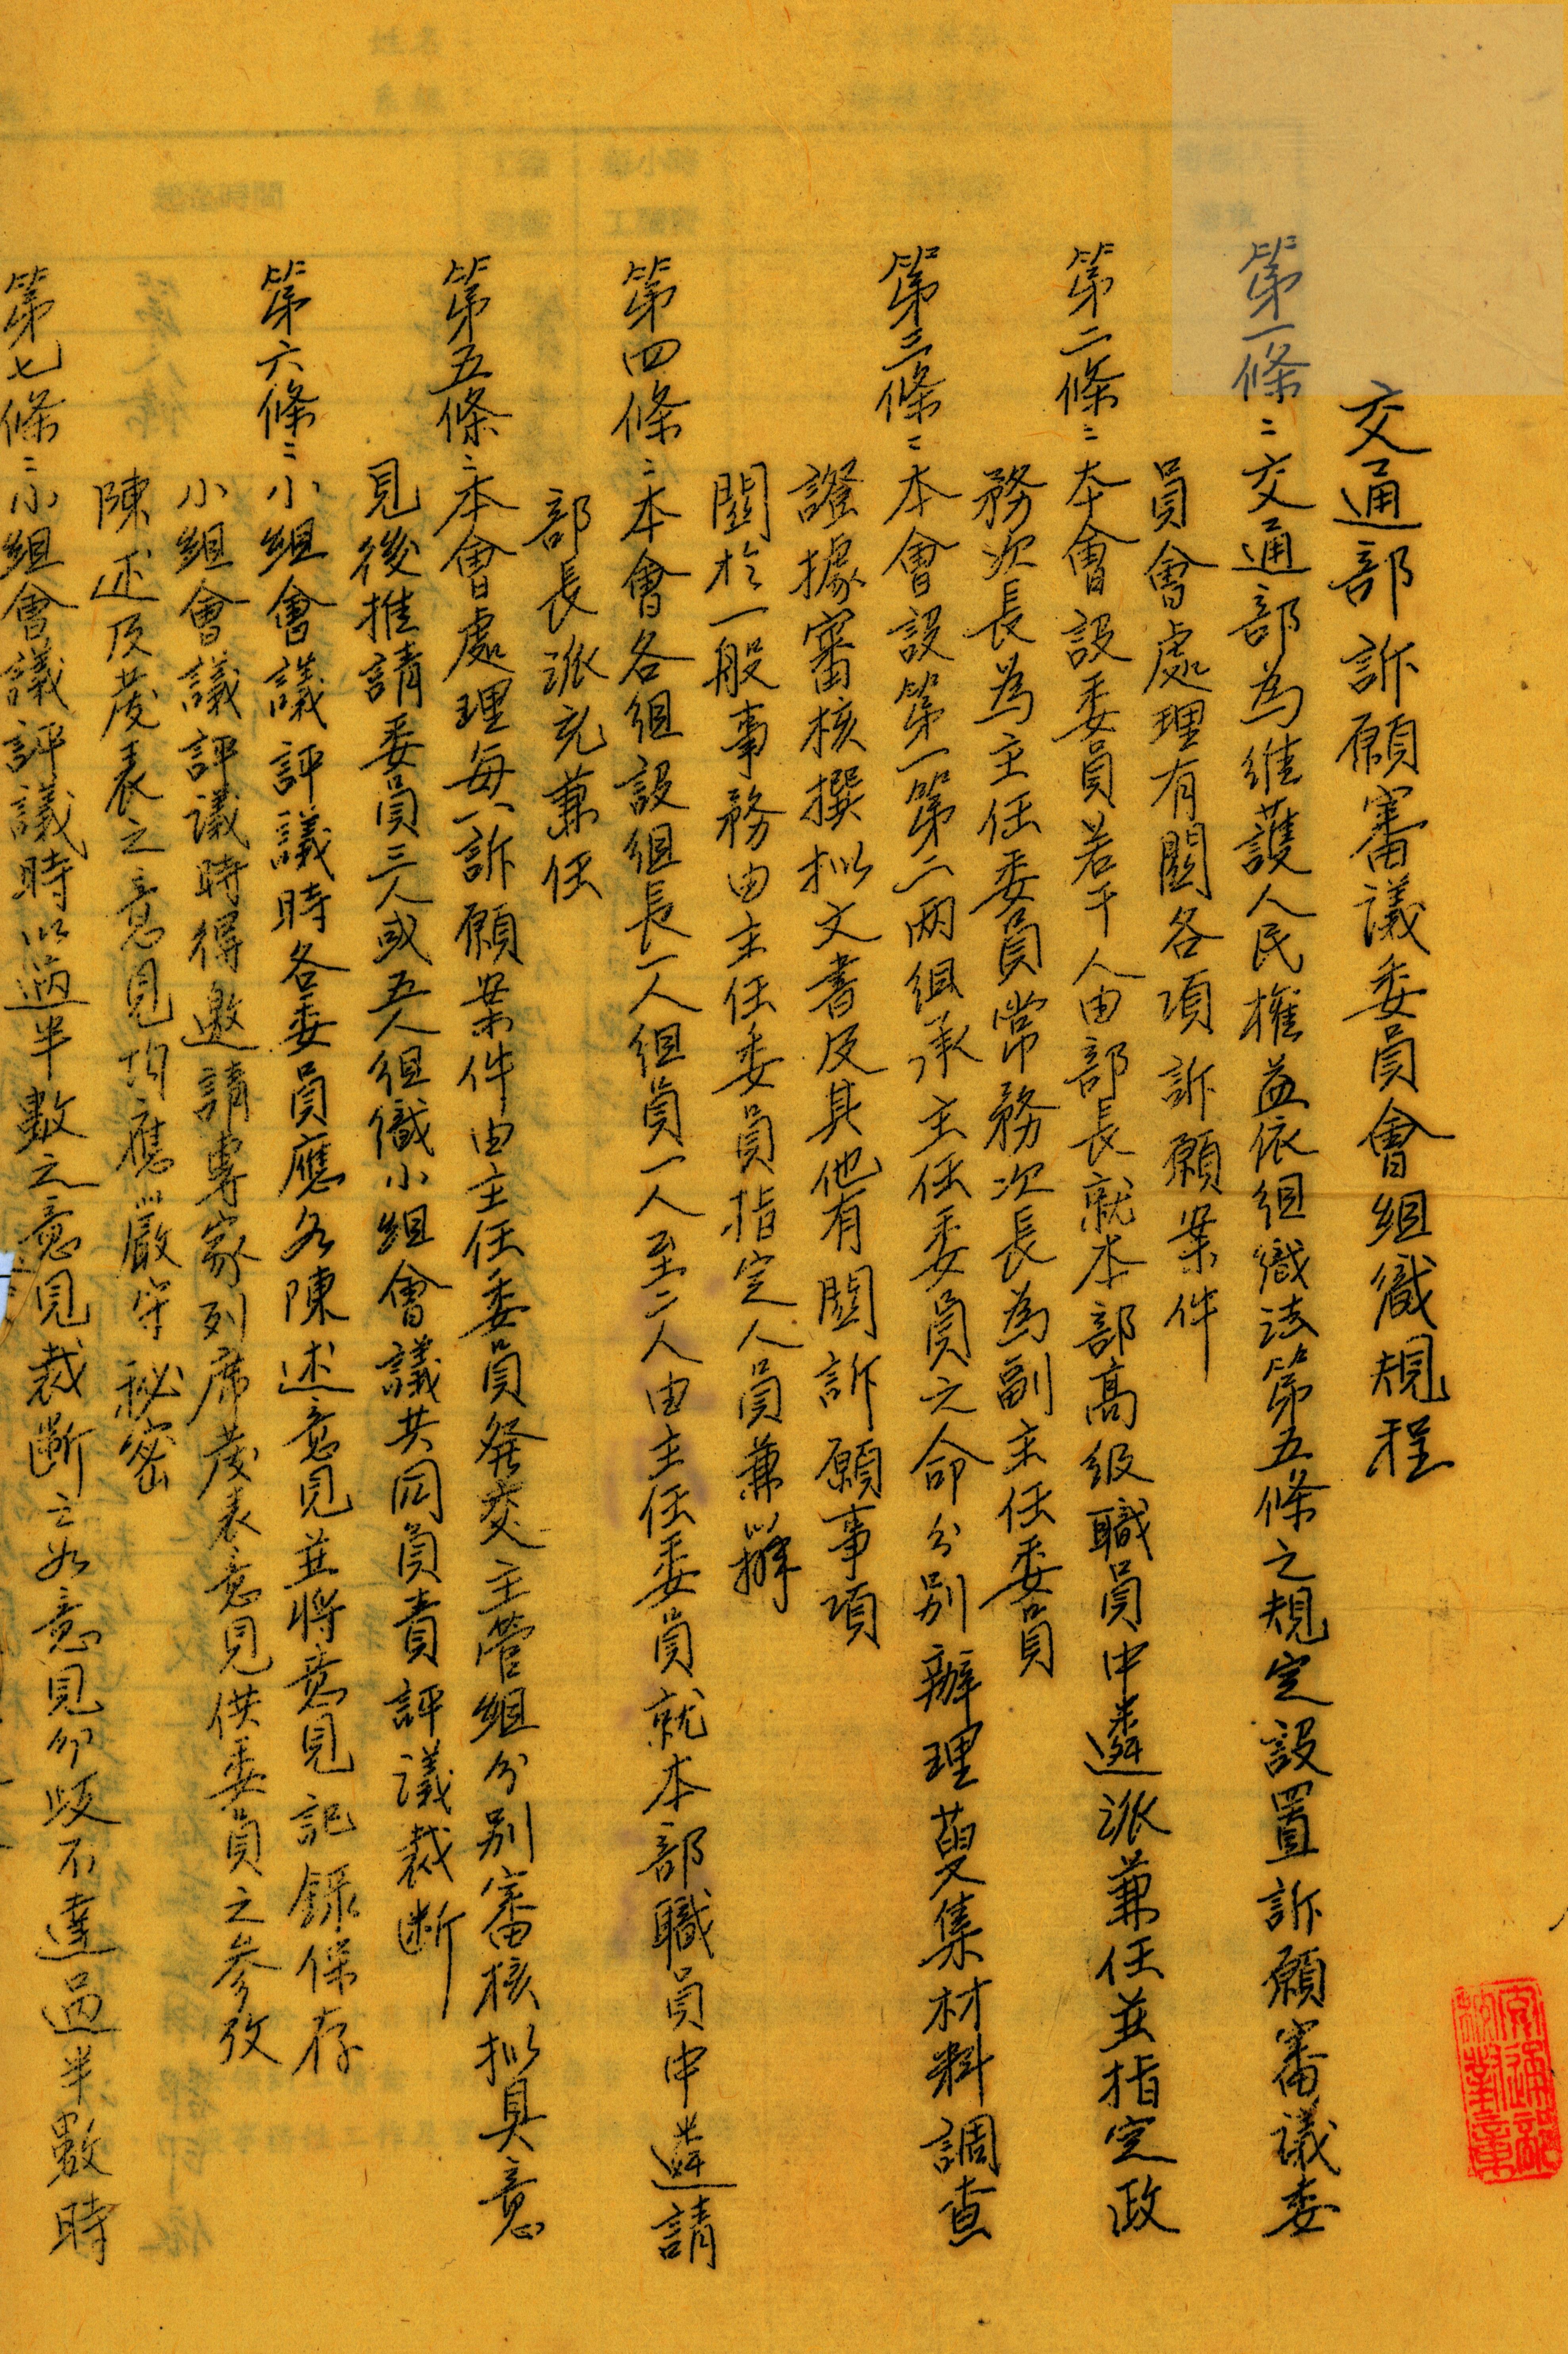 交通部訴願審議委員會組織規程
第一條：交通部為維護人民權益依組織法第五條之規定設置訴願審議委
員會處理有關各項訴願案件
第二條：本會設委員若干人由部長就本部高級職員中遴派兼任並指定政
務次長為主任委員常務次長為副主任委員
第三條：本會設第一第二兩組承主任委員之命分別辦理蒐集材料調查
證據審核撰拟文書及其他有關訴願事項
關於一般事務由主任委員指定人員兼辦
第四條：本會各組設組長一人組員一人至二人由主任委員就本部職員中遴請
部長派充兼任
第五條：本會處理每一訴願案件由主任委員發交主管組分別審核拟具意
見後推請委員三人或五人組織小組會議共同負責評議裁断
第六條：小組會議評議時各委員應各陳述意見並將意見記錄保存
小組會議評議時得邀請專家列席發表意見供委員之參攷
陳述及發表之意見均應嚴守秘密
第七條：小組會議評議時以過半數之意見裁断之如意見分歧不達過半數時